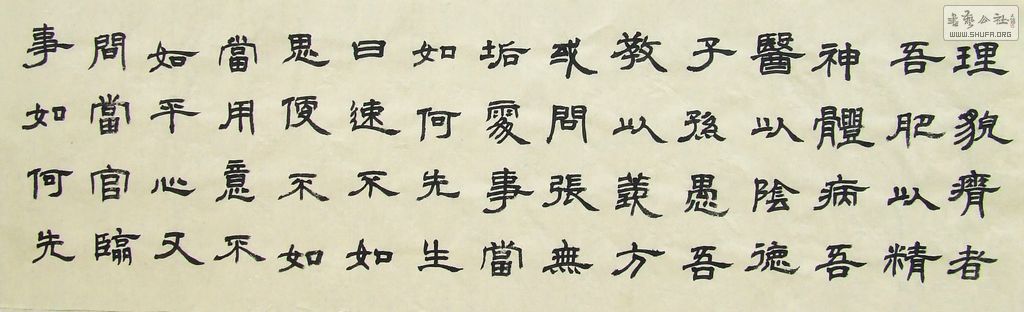 理貌瘠者
吾肥以精
神體病吾
醫以陰德
子孫愚吾
教以義方
或問張無
垢處事當
如何先生
曰速不如
思便不如
當用意不
如平心又
問當官臨
事如何先
書藝公社
WWW.SHUFA.ORG